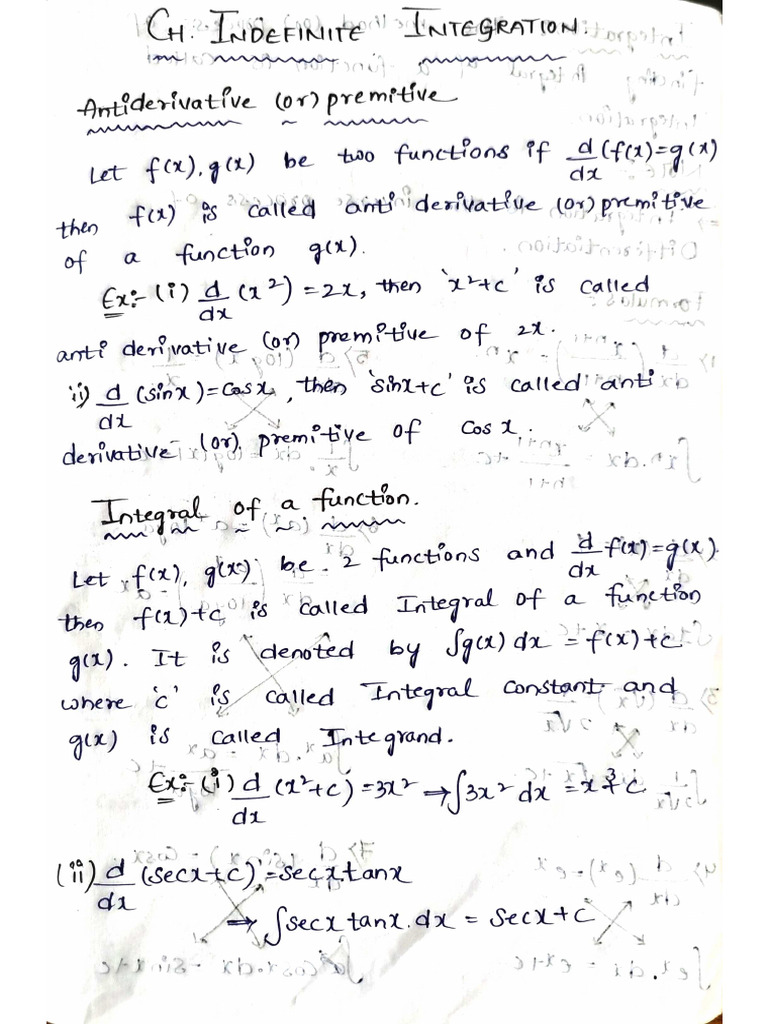 CH: INDEFINITE INTEGRATION:
Antiderivative (or) premitive
Let f(x), g(x) be two functions if d/dx (f(x)=g(x)
then f(x) is called anti derivative (or) premitive
of a function g(x).
Ex:- (i) d/dx (x²) = 2x, then 'x²+c' is called
anti derivative (or) premitive of 2x.
ii) d/dx (sinx) = cosx, then 'sinx+c' is called anti
derivative (or) premitive of cos x.
Integral of a function.
Let f(x), g(x) be 2 functions and d/dx f(x)=g(x)
then f(x)+c is called Integral of a function
g(x). It is denoted by ∫g(x) dx = f(x)+c
where 'c' is called Integral constant and
g(x) is called Integrand.
Ex:- (i) d/dx (x²+c) = 3x² → ∫3x² dx = x³+c
(ii) d/dx (secx+c) = secxtanx
⇒ ∫secx tanx.dx = secx+c